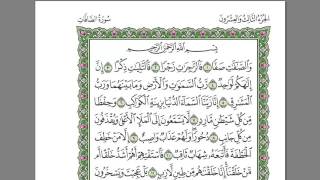 الجزء الثالث والعشرون
سورة الصافات
بسم الله الرحمن الرحيم
والصافات صفا ۝ فالزاجرات زجرا ۝ فالتاليات ذكرا ۝ إن
إلهكم لواحد ۝ رب السماوات والأرض وما بينهما ورب
المشارق ۝ إنا زينا السماء الدنيا بزينة الكواكب ۝ وحفظا
من كل شيطان مارد ۝ لا يسمعون إلى الملإ الأعلى ويقذفون
من كل جانب ۝ دحورا ولهم عذاب واصب ۝ إلا من خطف
الخطفة فأتبعه شهاب ثاقب ۝ فاستفتهم أهم أشد خلقا أم
من خلقنا إنا خلقناهم من طين لازب ۝ بل عجبت ويسخرون